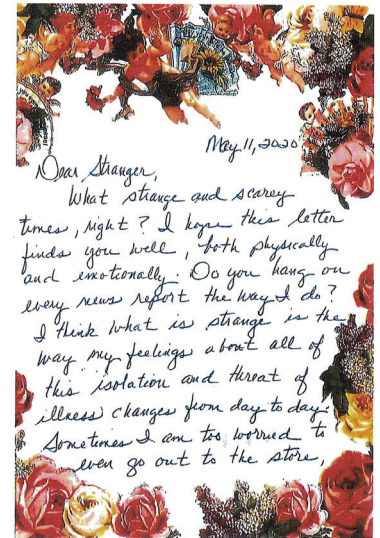 May 11, 2020
Dear Stranger,
What strange and scarey
times, right? I hope this letter
finds you well, both physically
and emotionally. Do you hang on
every news report the way I do?
I think what is strange is the
way my feelings about all of
this isolation and threat of
illness changes from day to day.
Sometimes I am too worried to
even go out to the store,